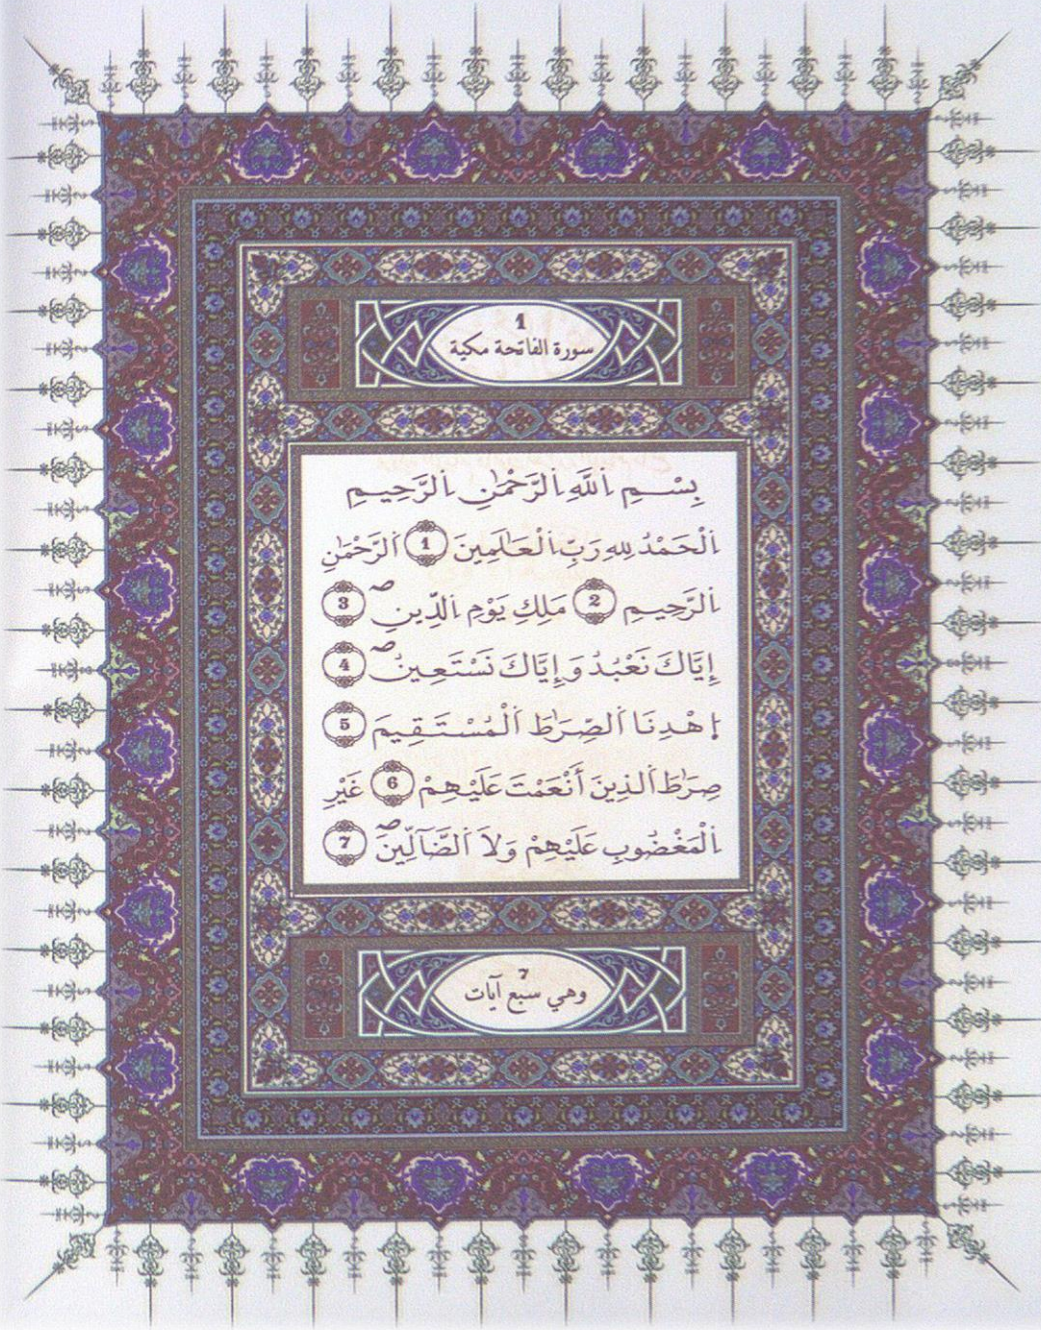 1
سورة الفاتحة مكية
بِسْــمِ اِ۬للَّهِ اِ۬لرَّحْمَٰنِ اِ۬لرَّحِيــمِ
اَ۬لْحَمْدُ لِلهِ رَبِّ اِ۬لْعَٰلَمِينَ 1 اَ۬لرَّحْمَٰنِ
اِ۬لرَّحِيــمِ 2 مَلِكِ يَوْمِ اِ۬لدِّينِۖ 3
إِيَّاكَ نَعْبُدُ وَإِيَّاكَ نَسْتَعِينُۖ 4
اِ۪هْدِنَا اَ۬لصِّرَٰطَ اَ۬لْمُسْتَقِيمَ 5
صِرَٰطَ اَ۬لذِينَ أَنْعَمْتَ عَلَيْهِمْ 6 غَيْرِ
اِ۬لْمَغْضُوبِ عَلَيْهِمْ وَلَا اَ۬لضَّآلِّينَۖ 7
7
وهي سبع آيات